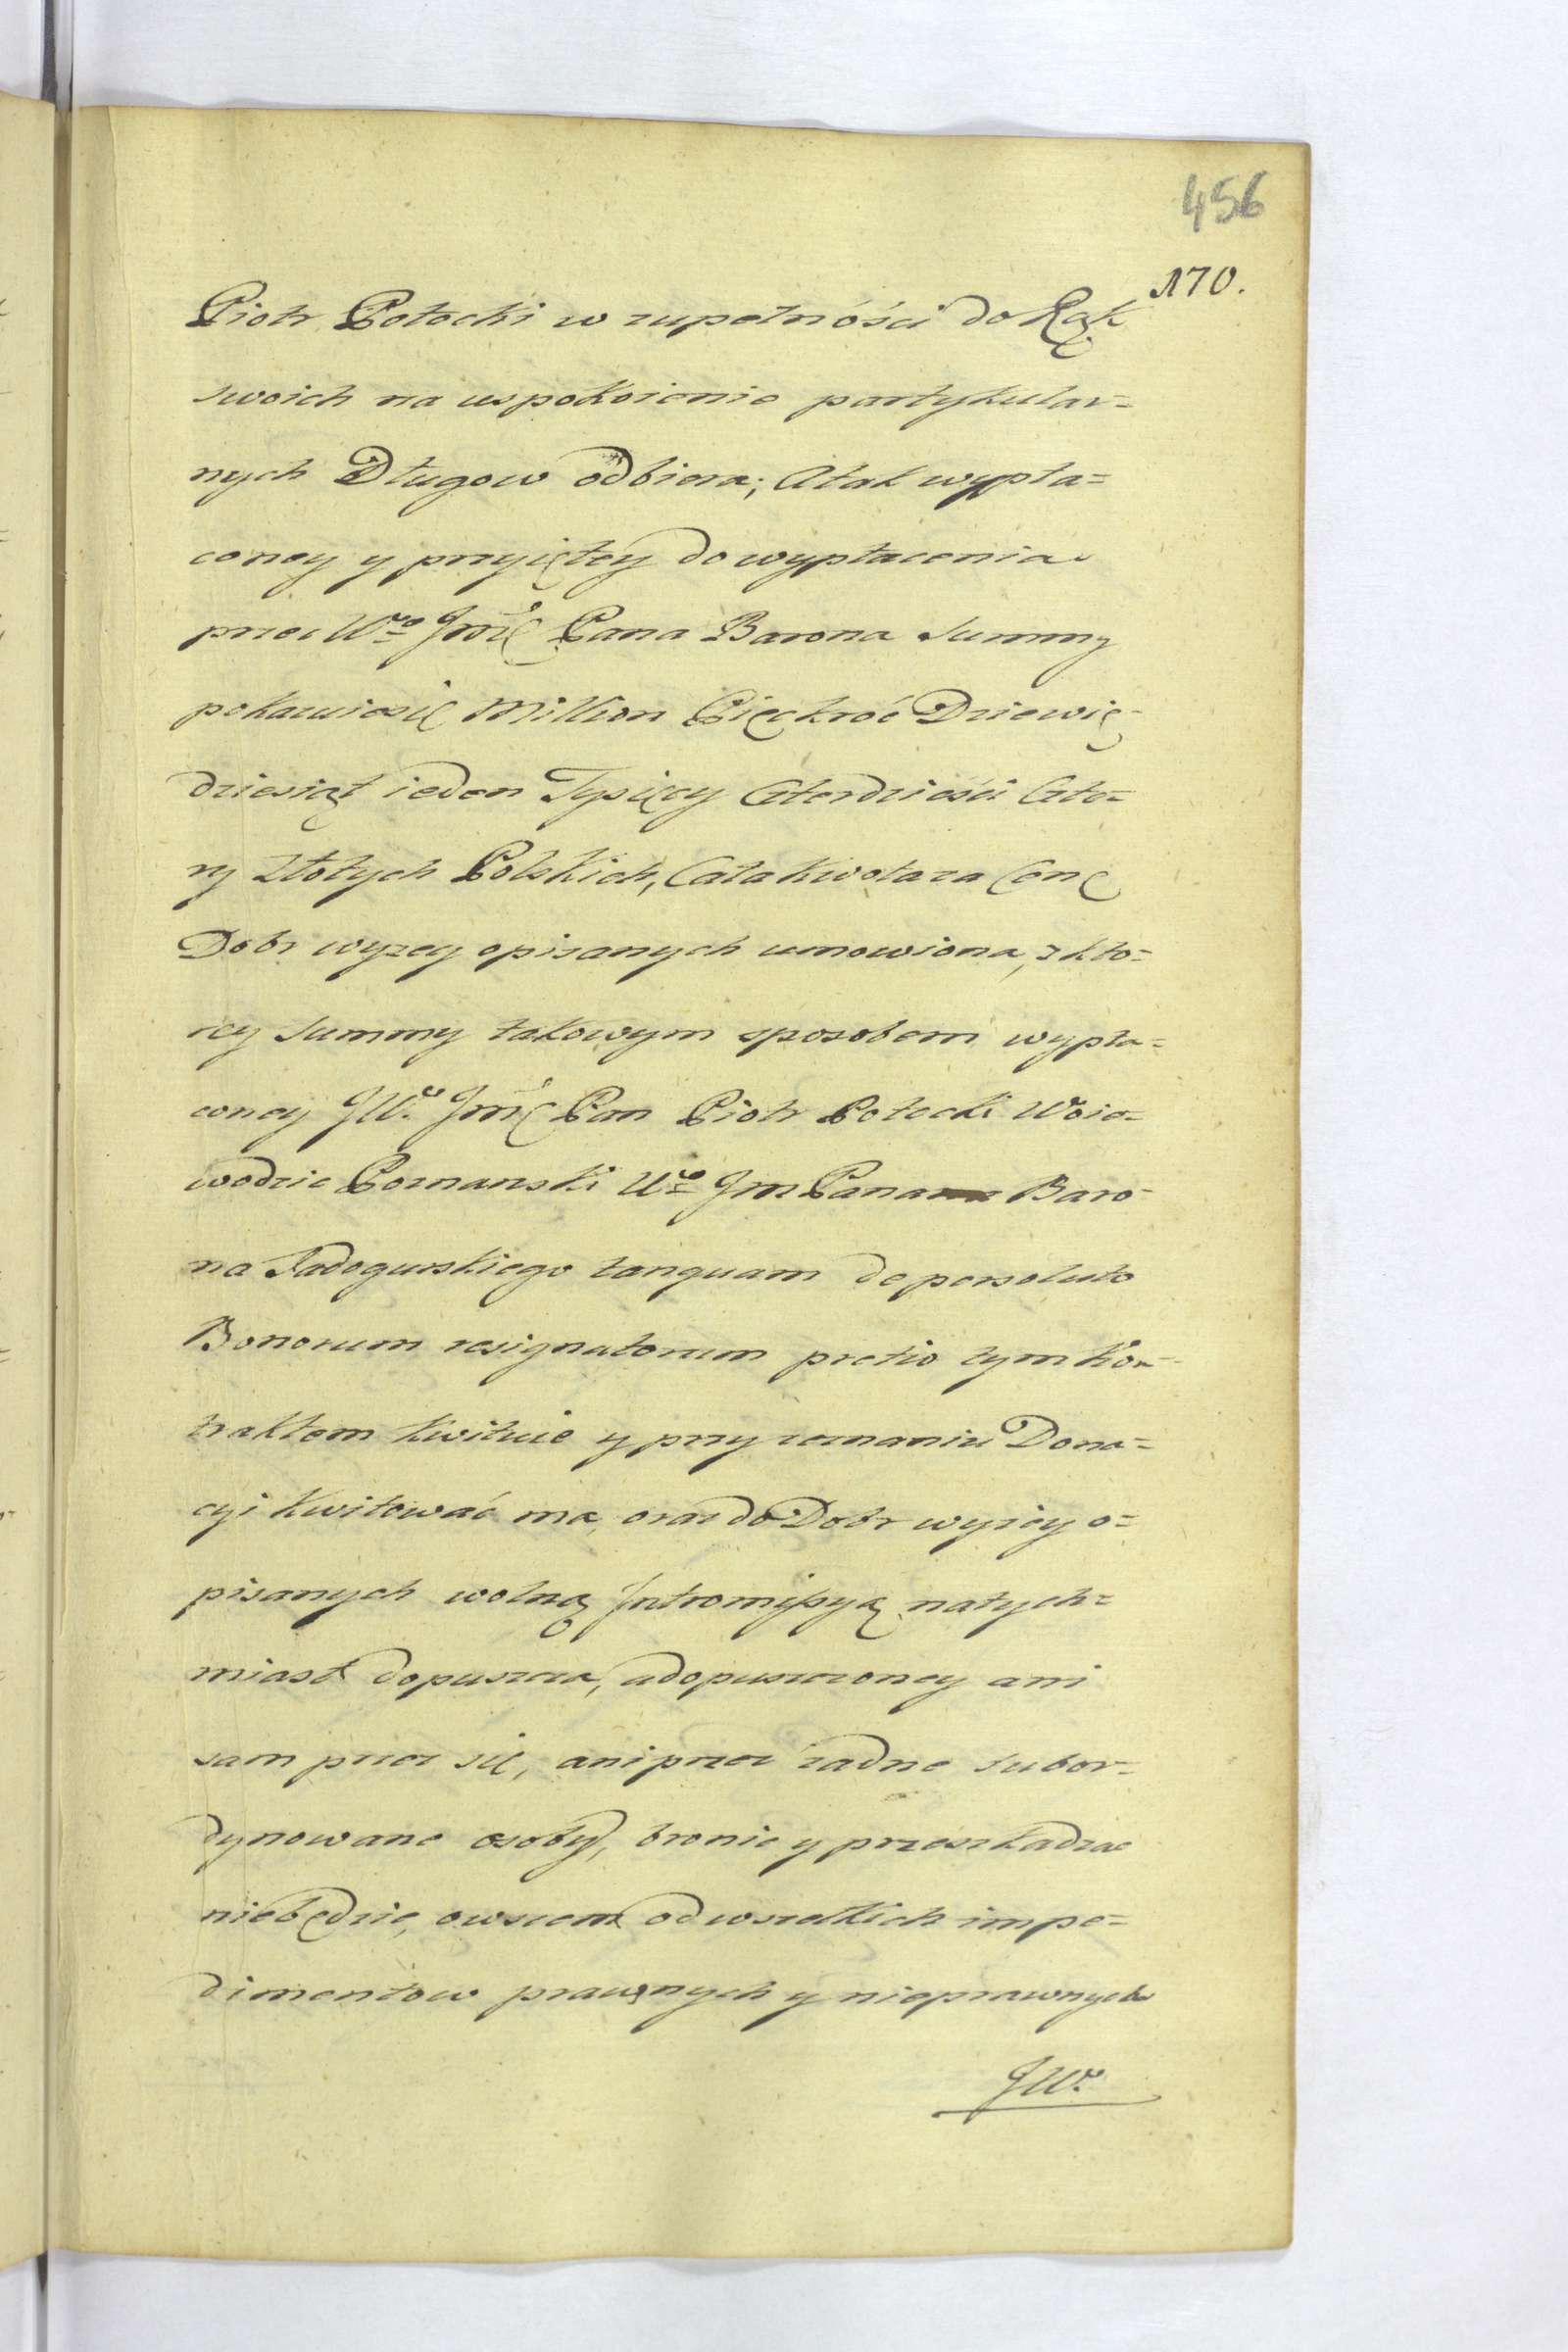 456
170.
Piotr Potocki w zupełności do Rąk
swoich na uspokoienie partykular=
nych Długow odbiera; Atak wypła=
coney y przyiętey do wypłacenia
przez Wgo Jmć Pana Barona Summy
pokazuiesię Million Pięckroć Dziewię=
dziesiąt ieden Tysięcy Czterdzieści Czte=
ry Złotych Polskich, Cała Kwota za Cenę
Dobr wyzey opisanych umowiona, z kto=
rey Summy takowym sposobem wypła=
coney JW. Jmć Pan Piotr Potocki Woie=
wodzic Poznanski Wgo Jm Pana Baro=
na Sadogurskiego tanquam de persoluto
Bonorum resignatorum pretio tym Kon=
traktem kwituie y przy zeznaniu Dona=
cyi kwitować ma, oraz do Dobr wyzey o=
pisanych wolną Intromissyą natych=
miast dopuszcza, a dopuszczoney ani
sam przez się, ani przez zadne subor=
dynowane osoby, bronic y przeszkadzac
niebędzie, owszem od wszelkich impe=
dimentow prawnych y nieprawnych
JW.